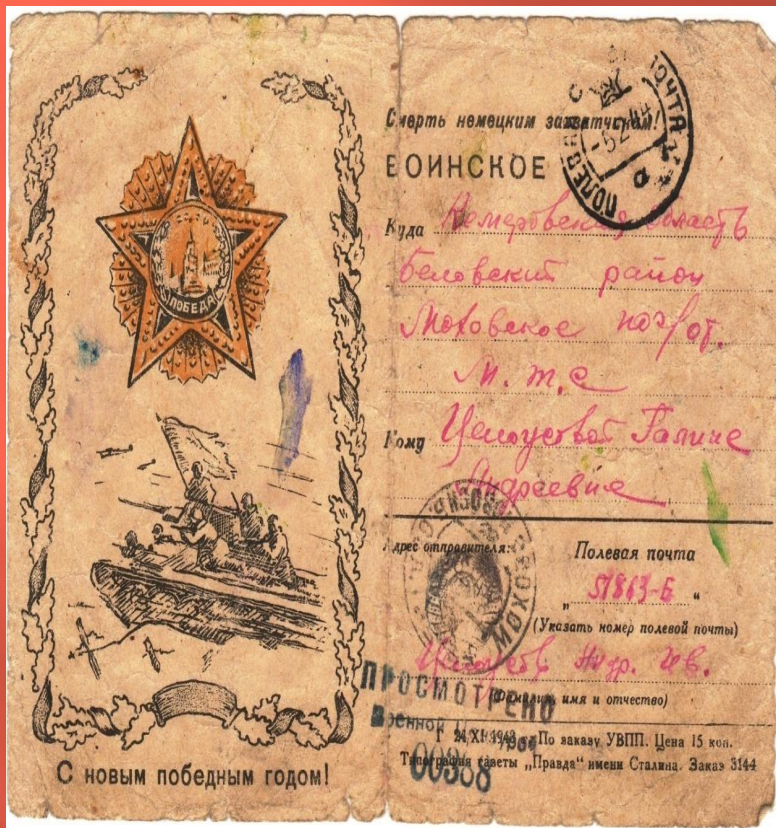 ПОБЕДА
С новым победным годом!
Смерть немецким захватчикам!
ВОИНСКОЕ
ПОЛЕВАЯ ПОЧТА
Куда Кемеровская область
Беловский район
Моховское поч/от.
М. т. с
Кому Целоустовой Галине
Андреевне
Адрес отправителя:
Полевая почта
„ 51863-Б “
(Указать номер полевой почты)
Целоустов Андр. Ив.
(Фамилия, имя и отчество)
ПРОСМОТРЕНО
Военной
00368
Г 24/XI 1943 г. По заказу УВПП. Цена 15 коп.
Типография газеты „Правда“ имени Сталина. Заказ 3144